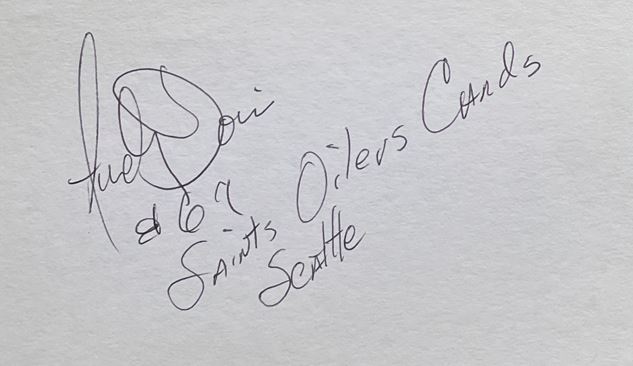 69
Saints Oilers Cards
Seattle